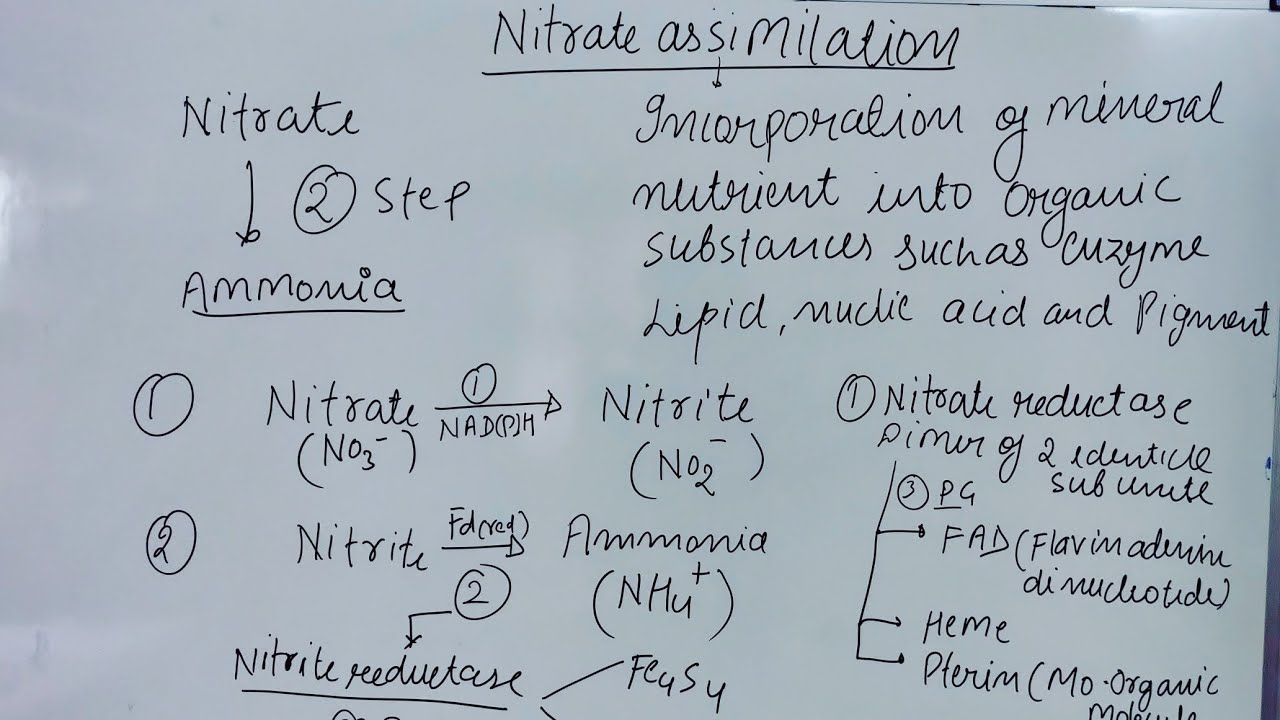 Nitrate assimilation
Nitrate
② Step
Ammonia
Incorporation of mineral
nutrient into organic
substances such as enzyme
Lipid, nuclic acid and Pigment
① Nitrate (NO3-) ① NAD(P)H Nitrite (NO2-)
② Nitrite Fd(red) ② Ammonia (NH4+)
Nitrite reeductase
Fe4S4
① Nitrate reductase
Dimer of 2 identicle
sub units
③ PG
FAD (Flavin adenine
dinucleotide)
Heme
Pterin (Mo-Organic